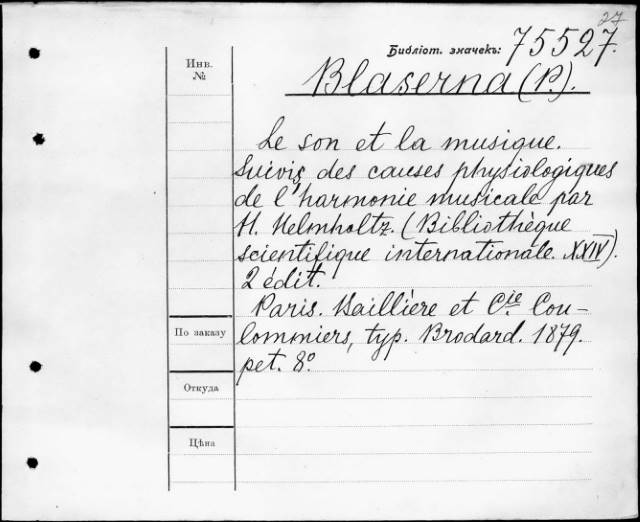 27
Библіот. значекъ: 75527.
Инв.
№
Blaserna (P.).
Le son et la musique.
Suivis des causes physiologiques
de l'harmonie musicale par
H. Helmholtz. (Bibliothèque
scientifique internationale. XXIV).
2 édit.
Paris. Baillière et Cie. Cou-
lommiers, typ. Brodard. 1879.
pet. 8º.
По заказу
Откуда
Цѣна